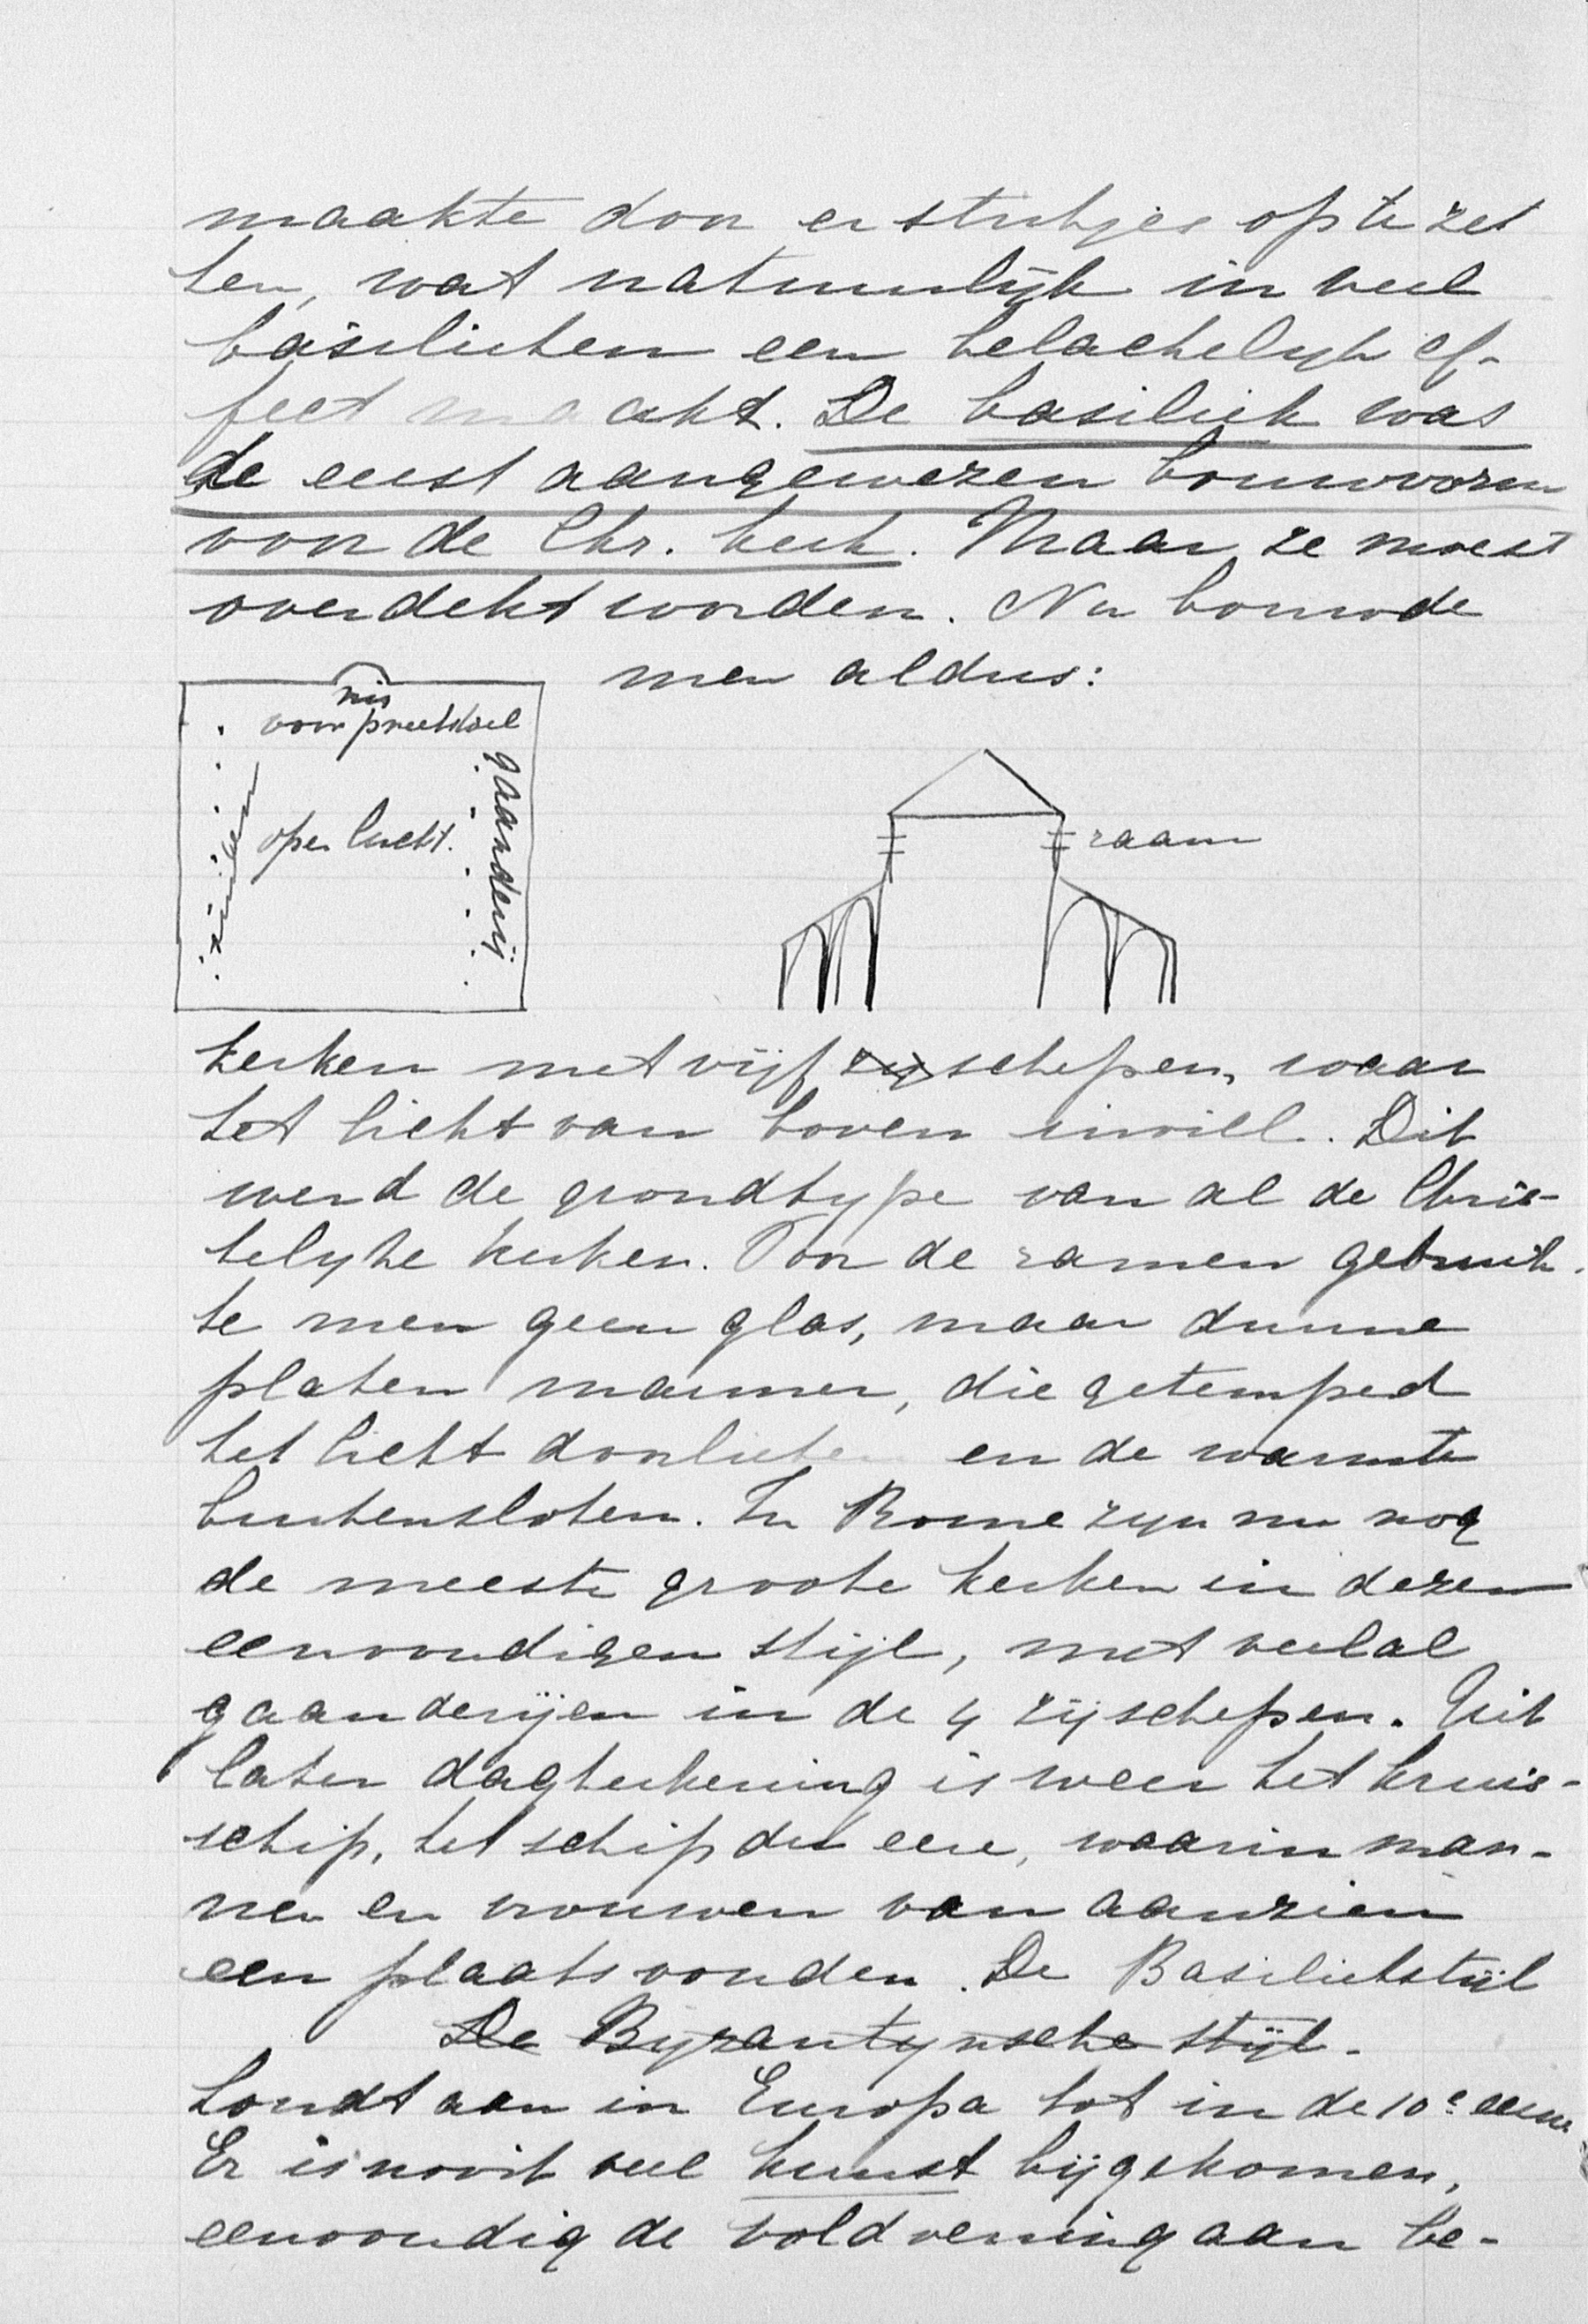 maakte door er stukjes op te zet
ten, wat natuurlijk in veel
basilieken een belachelijk ef-
fect maakt. De basiliek was
de eerst aangewezen bouwvorm
voor de Chr. kerk. Maar ze moest
overdekt worden. Nu bouwde
men aldus:
nis
voor preekstoel
gaanderij
open lucht.
zuilen
raam
kerken met vijf zij schepen, waar
het licht van boven inviel. Dit
werd de grondtype van al de Chris-
telijke kerken. Voor de ramen gebruik-
te men geen glas, maar dunne
platen marmer, die getemped
het licht doorlieten en de warmte
buitensloten. In Rome zijn nu nog
de meeste groote kerken in dezen
eenvoudigen stijl, met veelal
gaanderijen in de 4 zijschepen. Uit
later dagteekening is weer het kruis-
schip, het schip der eere, waarin man-
nen en vrouwen van aanzien
een plaats vonden. De Basiliekstijl
De Byzantynsche stijl.
houdt aan in Europa tot in de 10e eeuw
Er is nooit veel kunst bijgekomen,
eenvoudig de voldoening aan be-